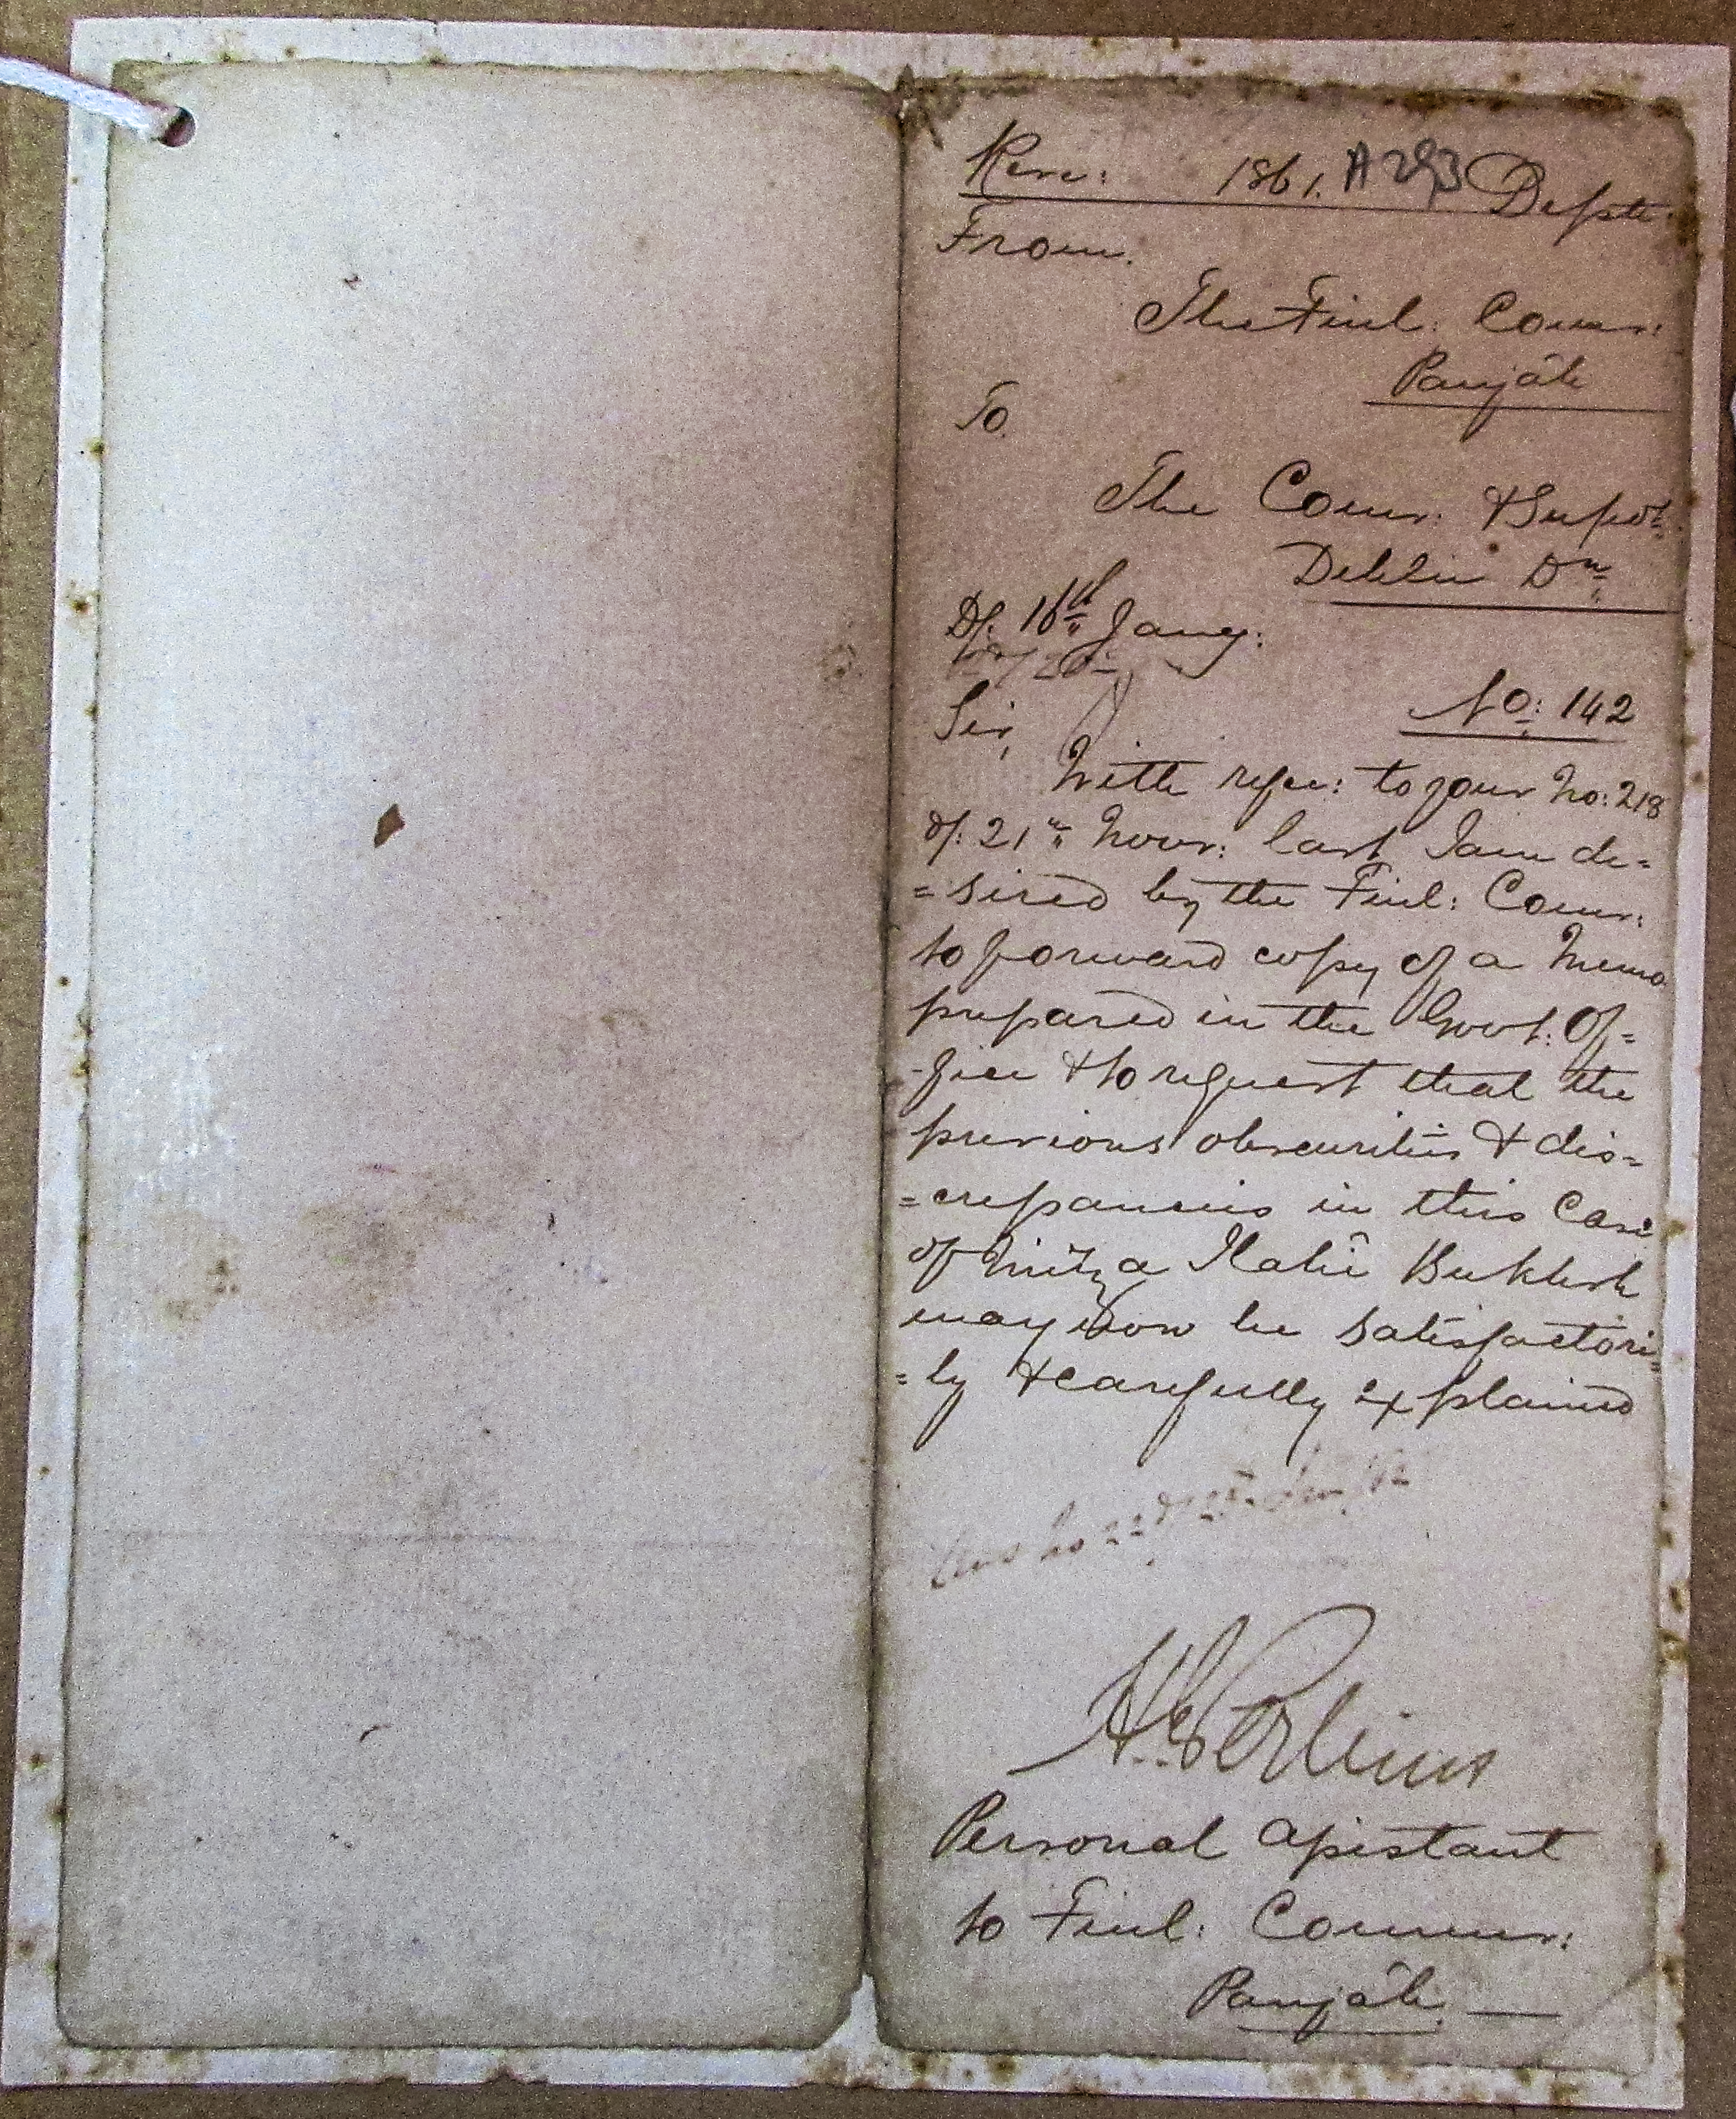 Reve: 1861. A 293 Deptt.
From.
The Finl: Comr:
Panjáb
To.
The Comr: & Supdt.
Dehlie Dn.
D/: 16th Jany:
No: 142
Sir,
With refce: to your No: 218
d/: 21st Novr: last I am de-
=sired by the Finl: Comr:
to forward copy of a Memo
prepared in the Govt: Of=
-fice & to request that the
previous obscurities & dis=
=crepancies in this Case
of Mirza Ilahi Bukhsh
may now be satisfactori=
=ly & carefully explained
Ans No 22 d/ 25
Personal Assistant
to Finl: Commr:
Panjáb.